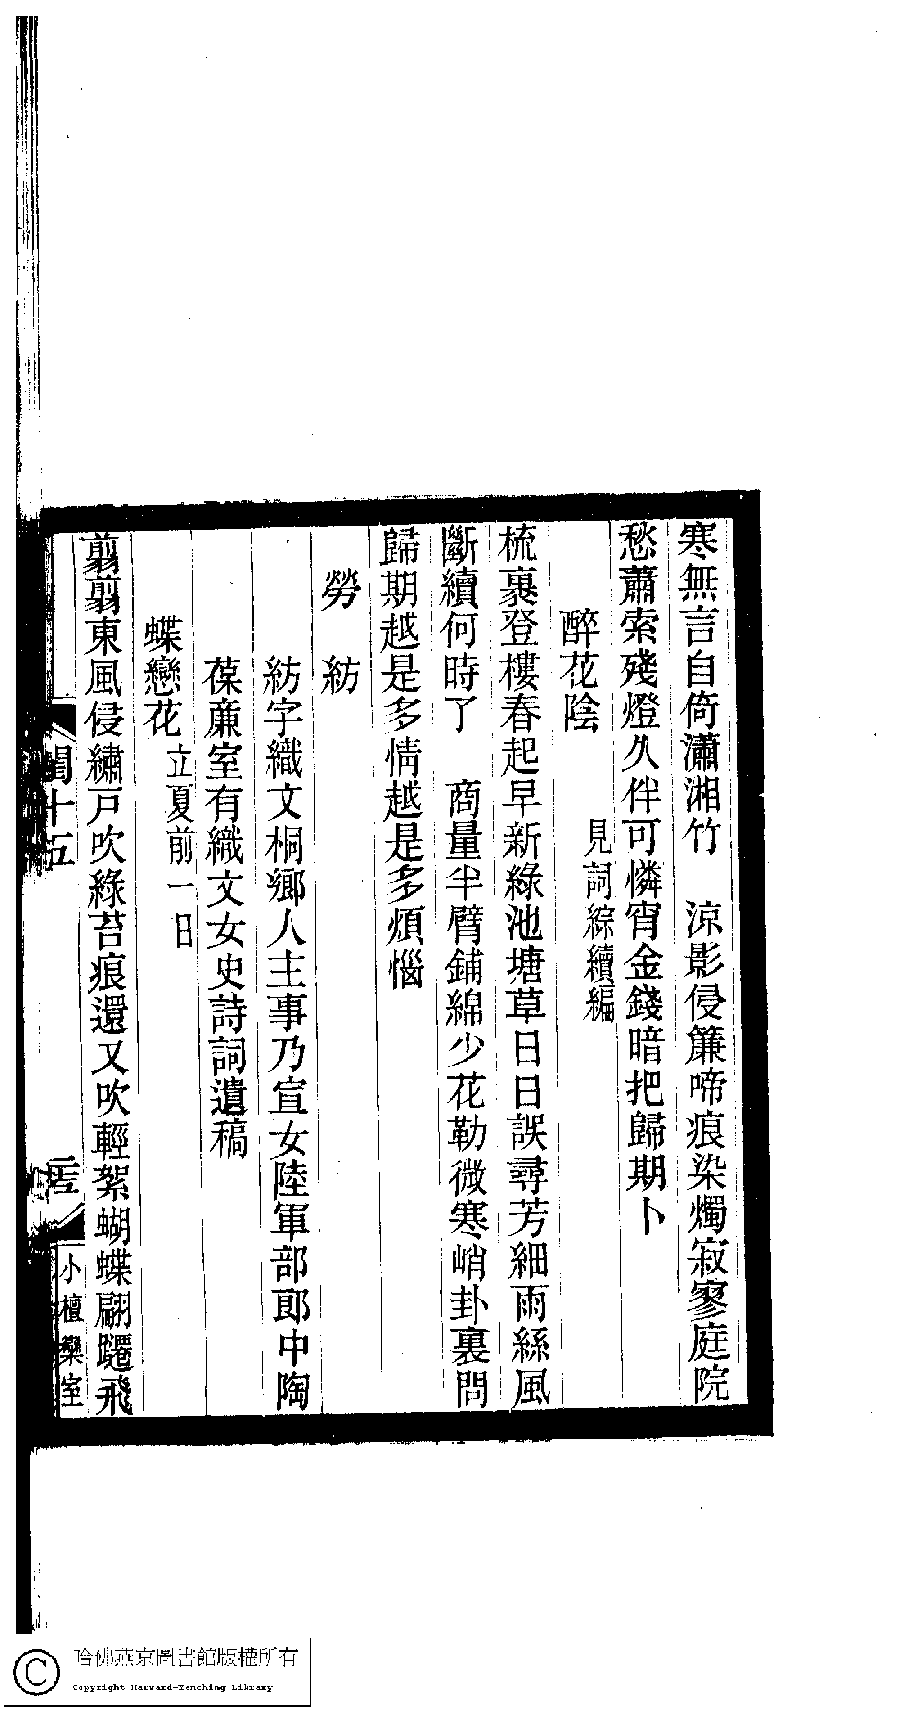 寒無言自倚瀟湘竹　涼影侵簾啼痕染燭寂寥庭院
愁蕭索殘燈久伴可憐宵金錢暗把歸期卜
醉花陰　見詞綜續編
梳裹登樓春起早新綠池塘草日日誤尋芳細雨絲風
斷續何時了　商量半臂鋪綿少花勒微寒峭卦裏問
歸期越是多情越是多煩惱
勞　紡
紡字織文桐鄉人主事乃宣女陸軍部郎中陶
葆廉室有織文女史詩詞遺稿
蝶戀花立夏前一日
翦翦東風侵繡戸吹綠苔痕還又吹輕絮蝴蝶翩躚飛
閨十五
小檀欒室
哈佛燕京圖書館版權所有
Copyright Harvard-Yenching Library